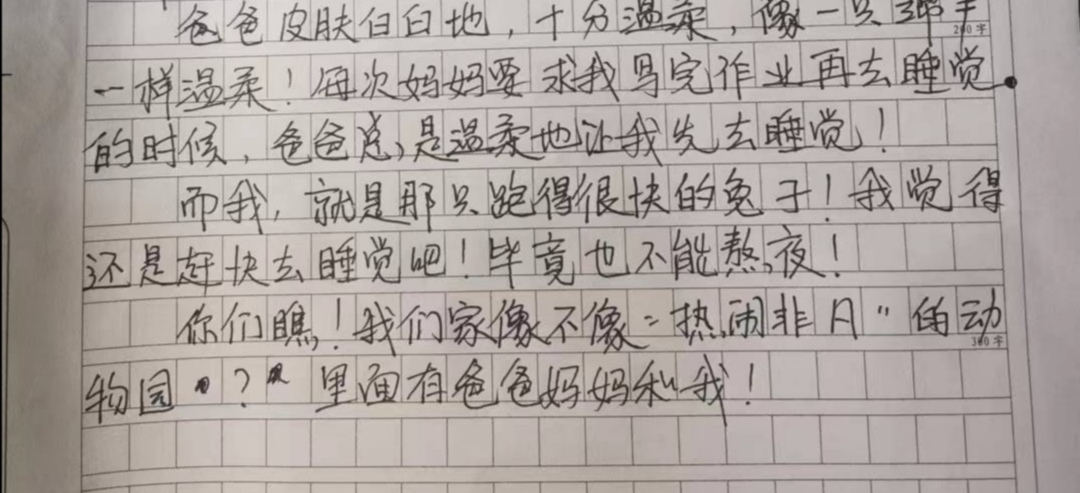 爸爸皮肤白白地，十分温柔，像一只绵羊
200字
一样温柔！每次妈妈要求我写完作业再去睡觉
的时候，爸爸总是温柔地让我先去睡觉！
而我，就是那只跑得很快的兔子！我觉得
还是赶快去睡觉吧！毕竟也不能熬夜！
你们瞧！我们家像不像“热闹非凡”的动
300字
物园"？"里面有爸爸妈妈和我！